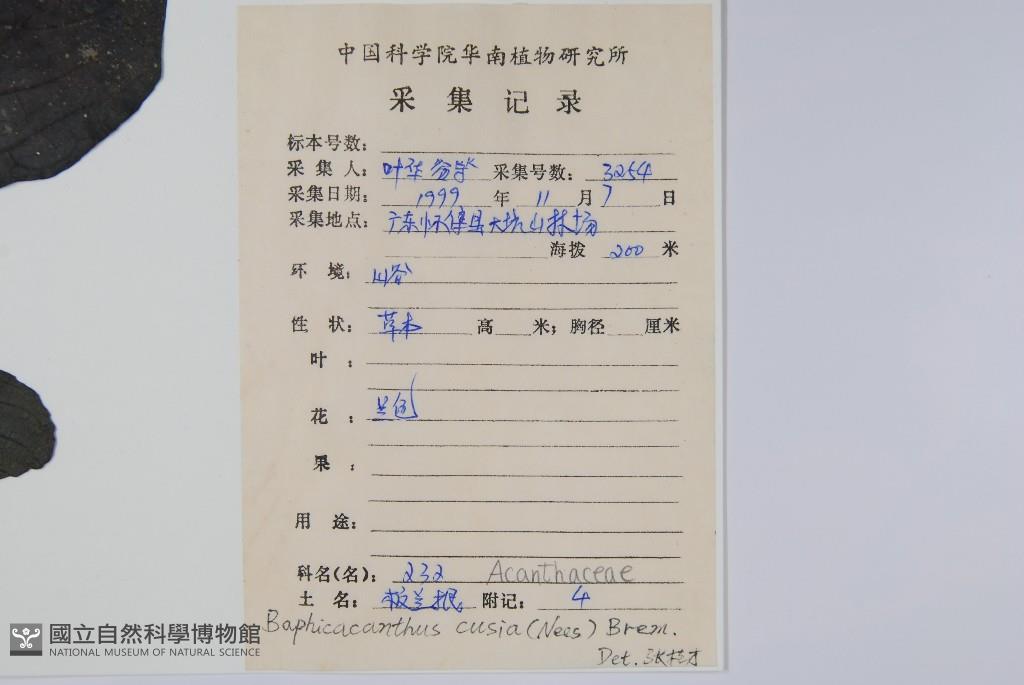 中国科学院华南植物研究所
采集记录
标本号数:
采集人: 叶华谷等 采集号数: 3254
采集日期: 1999 年 11 月 7 日
采集地点: 广东怀集县大坑山林场
海拨 200 米
环境: 山谷
性状: 草本 高 米; 胸径 厘米
叶:
花: 兰色
果:
用途:
科名(名): 232 Acanthaceae
土名: 板兰根 附记: 4
Baphicacanthus cusia (Nees) Brem.
Det. 张桂才
國立自然科學博物館
NATIONAL MUSEUM OF NATURAL SCIENCE